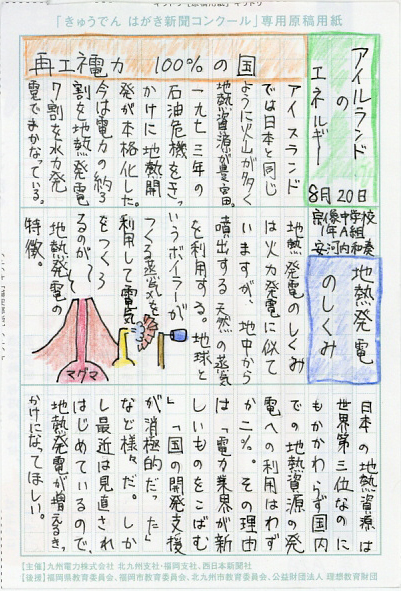 「きゅうでん はがき新聞コンクール」専用原稿用紙
アイルランド
の
エネルギー
8月20日
宗像中学校
1年A組
安河内和奏
再エネ電力 100%の国
アイスランド
では日本と同じ
ように火山が多く
地熱資源が豊富。
一九七三年の
石油危機をきっ
かけに地熱開
発が本格化した。
今は電力の約3
割を地熱発電
7割を水力発
電でまかなっている。
地熱発電
のしくみ
地熱発電のしくみ
は火力発電に似て
いますが、地中から
噴出する天然の蒸気
を利用する。地球と
いうボイラーが
つくる蒸気を
利用して電気
をつくる
るのが
地熱発電の
特徴。
マグマ
日本の地熱資源は
世界第三位なのに
もかかわらず国内
での地熱資源の発
電への利用はわず
か二%。その理由
は「電力業界が新
しいものをこばむ
」「国の開発支援
が消極的だった」
など様々だ。しか
し最近は見直され
はじめているので、
地熱発電が増えるきっ
かけになってほしい。
【主催】九州電力株式会社 北九州支社・福岡支社、西日本新聞社
【後援】福岡県教育委員会、福岡市教育委員会、北九州市教育委員会、公益財団法人 理想教育財団